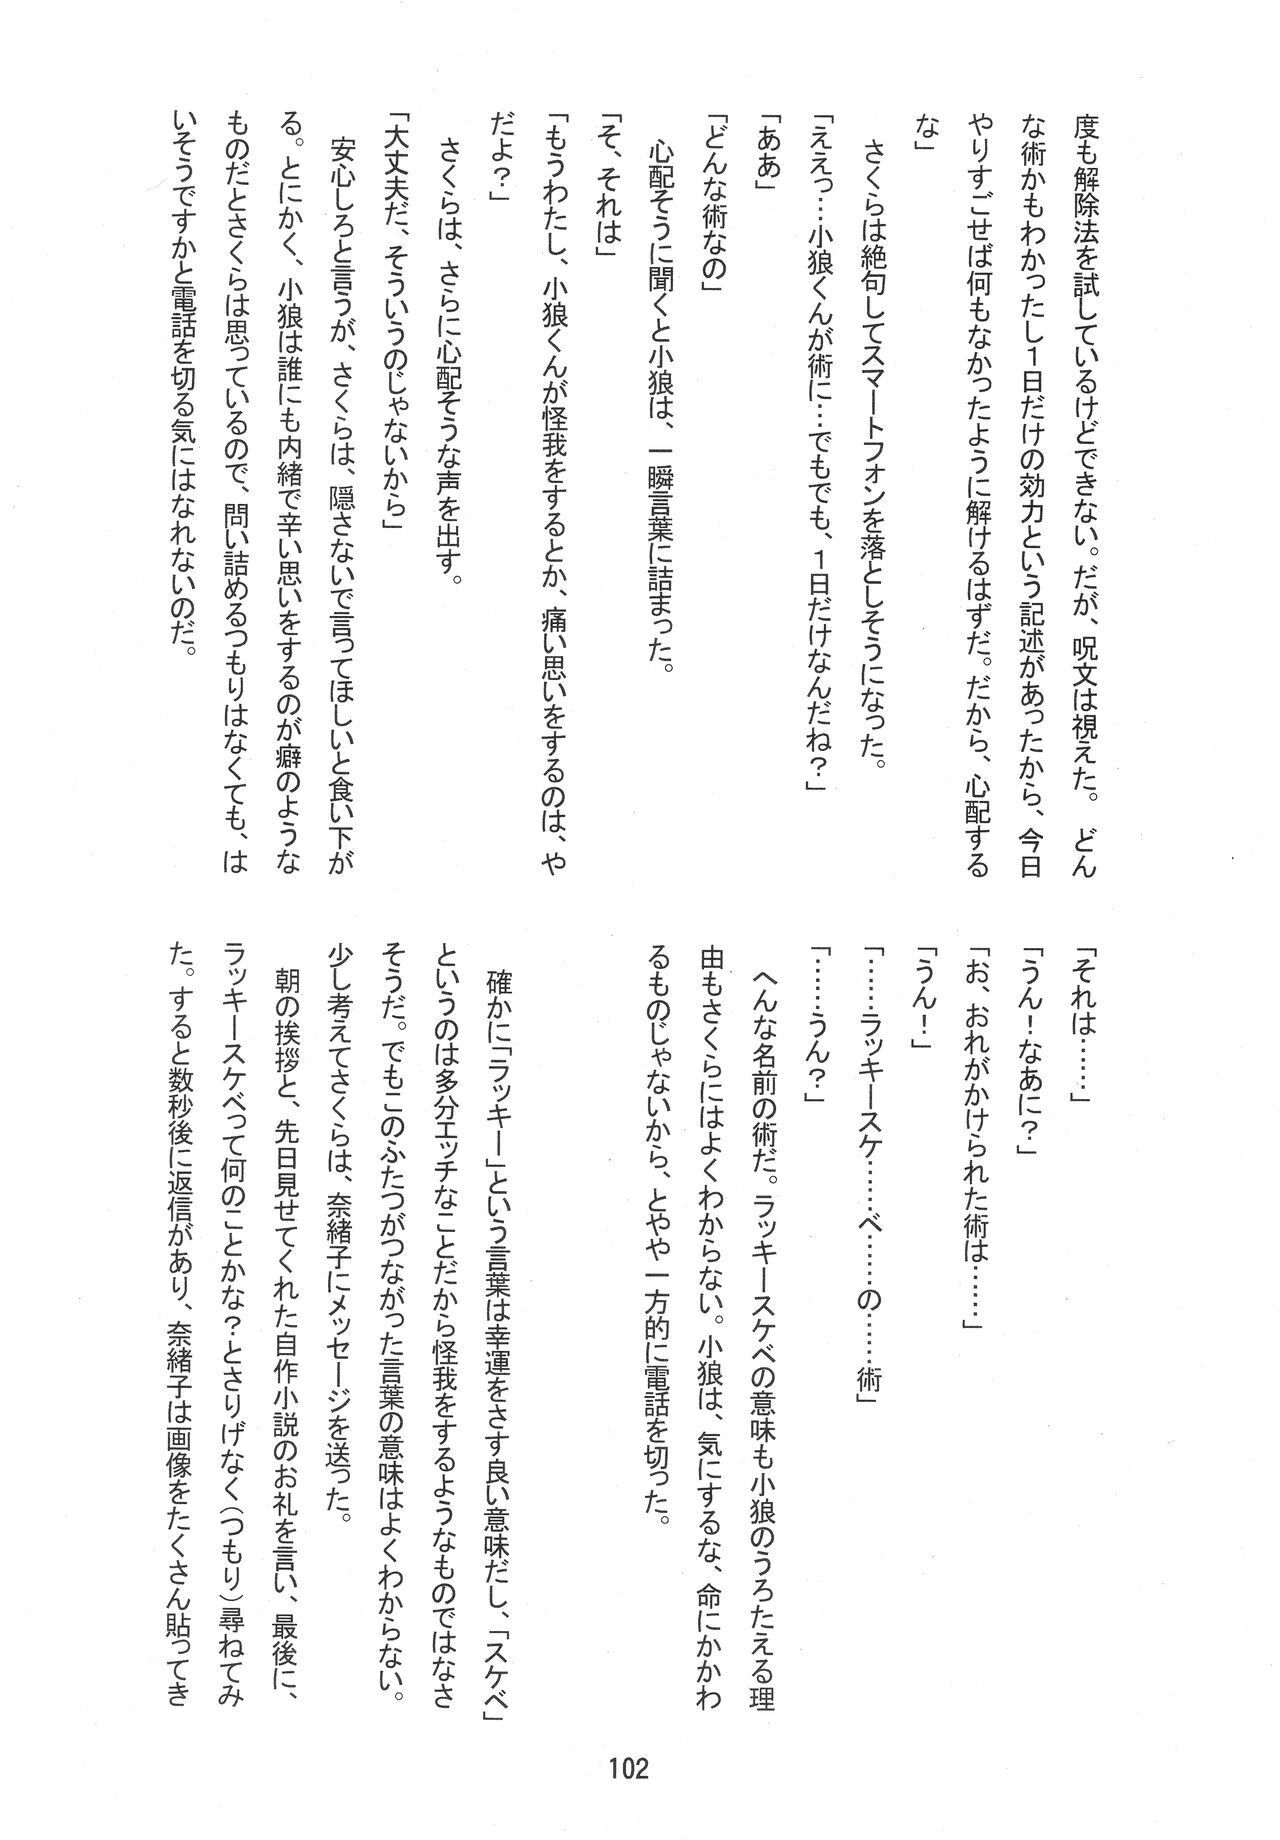 度も解除法を試しているけどできない。だが、呪文は視えた。　どん
な術かもわかったし１日だけの効力という記述があったから、今日
やりすごせば何もなかったように解けるはずだ。だから、心配する
な」
　さくらは絶句してスマートフォンを落としそうになった。
「ええっ…小狼くんが術に…でもでも、１日だけなんだね？」
「ああ」
「どんな術なの」
　心配そうに聞くと小狼は、一瞬言葉に詰まった。
「そ、それは」
「もうわたし、小狼くんが怪我をするとか、痛い思いをするのは、や
だよ？」
　さくらは、さらに心配そうな声を出す。
「大丈夫だ、そういうのじゃないから」
　安心しろと言うが、さくらは、隠さないで言ってほしいと食い下が
る。とにかく、小狼は誰にも内緒で辛い思いをするのが癖のような
ものだとさくらは思っているので、問い詰めるつもりはなくても、は
いそうですかと電話を切る気にはなれないのだ。
「それは……」
「うん！なあに？」
「お、おれがかけられた術は……」
「うん！」
「……ラッキースケ……ベ……の……術」
「……うん？」
　へんな名前の術だ。ラッキースケベの意味も小狼のうろたえる理
由もさくらにはよくわからない。小狼は、気にするな、命にかかわ
るものじゃないから、とやや一方的に電話を切った。
　確かに「ラッキー」という言葉は幸運をさす良い意味だし、「スケベ」
というのは多分エッチなことだから怪我をするようなものではなさ
そうだ。でもこのふたつがつながった言葉の意味はよくわからない。
少し考えてさくらは、奈緒子にメッセージを送った。
　朝の挨拶と、先日見せてくれた自作小説のお礼を言い、最後に、
ラッキースケベって何のことかな？とさりげなく（つもり）尋ねてみ
た。すると数秒後に返信があり、奈緒子は画像をたくさん貼ってき
102